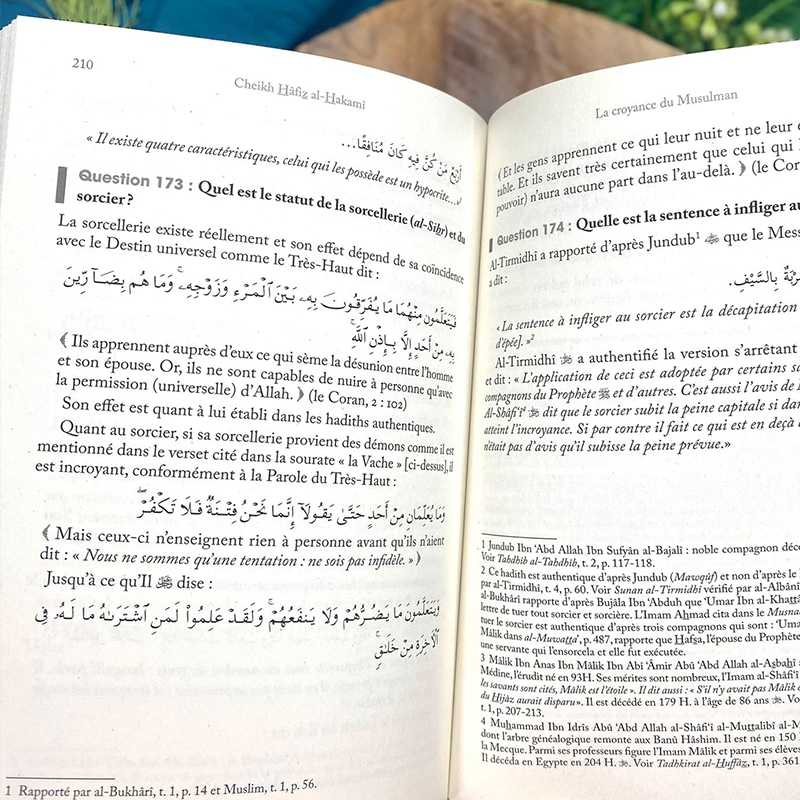 210
Cheikh Hâfiz al-Hakamî
أَرْبَعٌ مَنْ كُنَّ فِيهِ كَانَ مُنَافِقًا...
« Il existe quatre caractéristiques, celui qui les possède est un hypocrite...»¹
Question 173 : Quel est le statut de la sorcellerie (al-Sihr) et du
sorcier ?
La sorcellerie existe réellement et son effet dépend de sa coïncidence
avec le Destin universel comme le Très-Haut dit :
فَيَتَعَلَّمُونَ مِنْهُمَا مَا يُفَرِّقُونَ بِهِۦ بَيْنَ ٱلْمَرْءِ وَزَوْجِهِۦ ۚ وَمَا هُم بِضَآرِّينَ
بِهِۦ مِنْ أَحَدٍ إِلَّا بِإِذْنِ ٱللَّهِ ۚ
﴾ Ils apprennent auprès d'eux ce qui sème la désunion entre l'homme
et son épouse. Or, ils ne sont capables de nuire à personne qu'avec
la permission (universelle) d'Allah. ﴿ (le Coran, 2 : 102)
Son effet est quant à lui établi dans les hadiths authentiques.
Quant au sorcier, si sa sorcellerie provient des démons comme il est
mentionné dans le verset cité dans la sourate « la Vache » [ci-dessus], il
est incroyant, conformément à la Parole du Très-Haut :
وَمَا يُعَلِّمَانِ مِنْ أَحَدٍ حَتَّىٰ يَقُولَآ إِنَّمَا نَحْنُ فِتْنَةٌ فَلَا تَكْفُرْ ۖ
﴾ Mais ceux-ci n'enseignent rien à personne avant qu'ils n'aient
dit : « Nous ne sommes qu'une tentation : ne sois pas infidèle. » ﴿
Jusqu'à ce qu'Il ﷻ dise :
وَيَتَعَلَّمُونَ مَا يَضُرُّهُمْ وَلَا يَنفَعُهُمْ ۚ وَلَقَدْ عَلِمُوا۟ لَمَنِ ٱشْتَرَىٰهُ مَا لَهُۥ فِى
ٱلْـَٔاخِرَةِ مِنْ خَلَـٰقٍ ۚ
1 Rapporté par al-Bukhârî, t. 1, p. 14 et Muslim, t. 1, p. 56.
La croyance du Musulman
﴾ Et les gens apprennent ce qui leur nuit et ne leur e
table. Et ils savent très certainement que celui qui l
pouvoir) n'aura aucune part dans l'au-delà. ﴿ (le Cora
Question 174 : Quelle est la sentence à infliger au
Al-Tirmidhî a rapporté d'après Jundub¹ que le Mess
a dit :
رْبَةٌ بِالسَّيْفِ.
« La sentence à infliger au sorcier est la décapitation
d'épée]. »²
Al-Tirmidhî a authentifié la version s'arrêtant
et dit : « L'application de ceci est adoptée par certains sa
compagnons du Prophète ﷺ et d'autres. C'est aussi l'avis de M
Al-Shâfi'î⁴ dit que le sorcier subit la peine capitale si dan
atteint l'incroyance. Si par contre il fait ce qui est en deçà d
n'était pas d'avis qu'il subisse la peine prévue.»
1 Jundub Ibn 'Abd Allah Ibn Sufyân al-Bajalî : noble compagnon décé
Voir Tahdhib al-Tahdhib, t. 2, p. 117-118.
2 Ce hadith est authentique d'après Jundub (Mawqûf) et non d'après le
par al-Tirmidhî, t. 4, p. 60. Voir Sunan al-Tirmidhî vérifié par al-Albânî
al-Bukhârî rapporte d'après Bujâla Ibn 'Abduh que 'Umar Ibn al-Khattâ
lettre de tuer tout sorcier et sorcière. L'Imam Ahmad cita dans le Musna
tuer le sorcier est authentique d'après trois compagnons qui sont : 'Uma
Mâlik dans al-Muwatta', p. 487, rapporte que Hafsa, l'épouse du Prophète
une servante qui l'ensorcela et elle fut exécutée.
3 Mâlik Ibn Anas Ibn Mâlik Ibn Abî 'Âmir Abû 'Abd Allah al-Asbahî
Médine, l'érudit né en 93H. Ses mérites sont nombreux, l'Imam al-Shâfi'î
les savants sont cités, Mâlik est l'étoile ». Il dit aussi : « S'il n'y avait pas Mâlik
du Hijâz aurait disparu ». Il est décédé en 179 H. à l'âge de 86 ans. Vo
t. 1, p. 207-213.
4 Muhammad Ibn Idrîs Abû 'Abd Allah al-Shâfi'î al-Muttalibî al-M
dont l'arbre généalogique remonte aux Banû Hâshim. Il est né en 150
la Mecque. Parmi ses professeurs figure l'Imam Mâlik et parmi ses élève
Il décéda en Egypte en 204 H. Voir Tadhkirat al-Huffâz, t. 1, p. 361